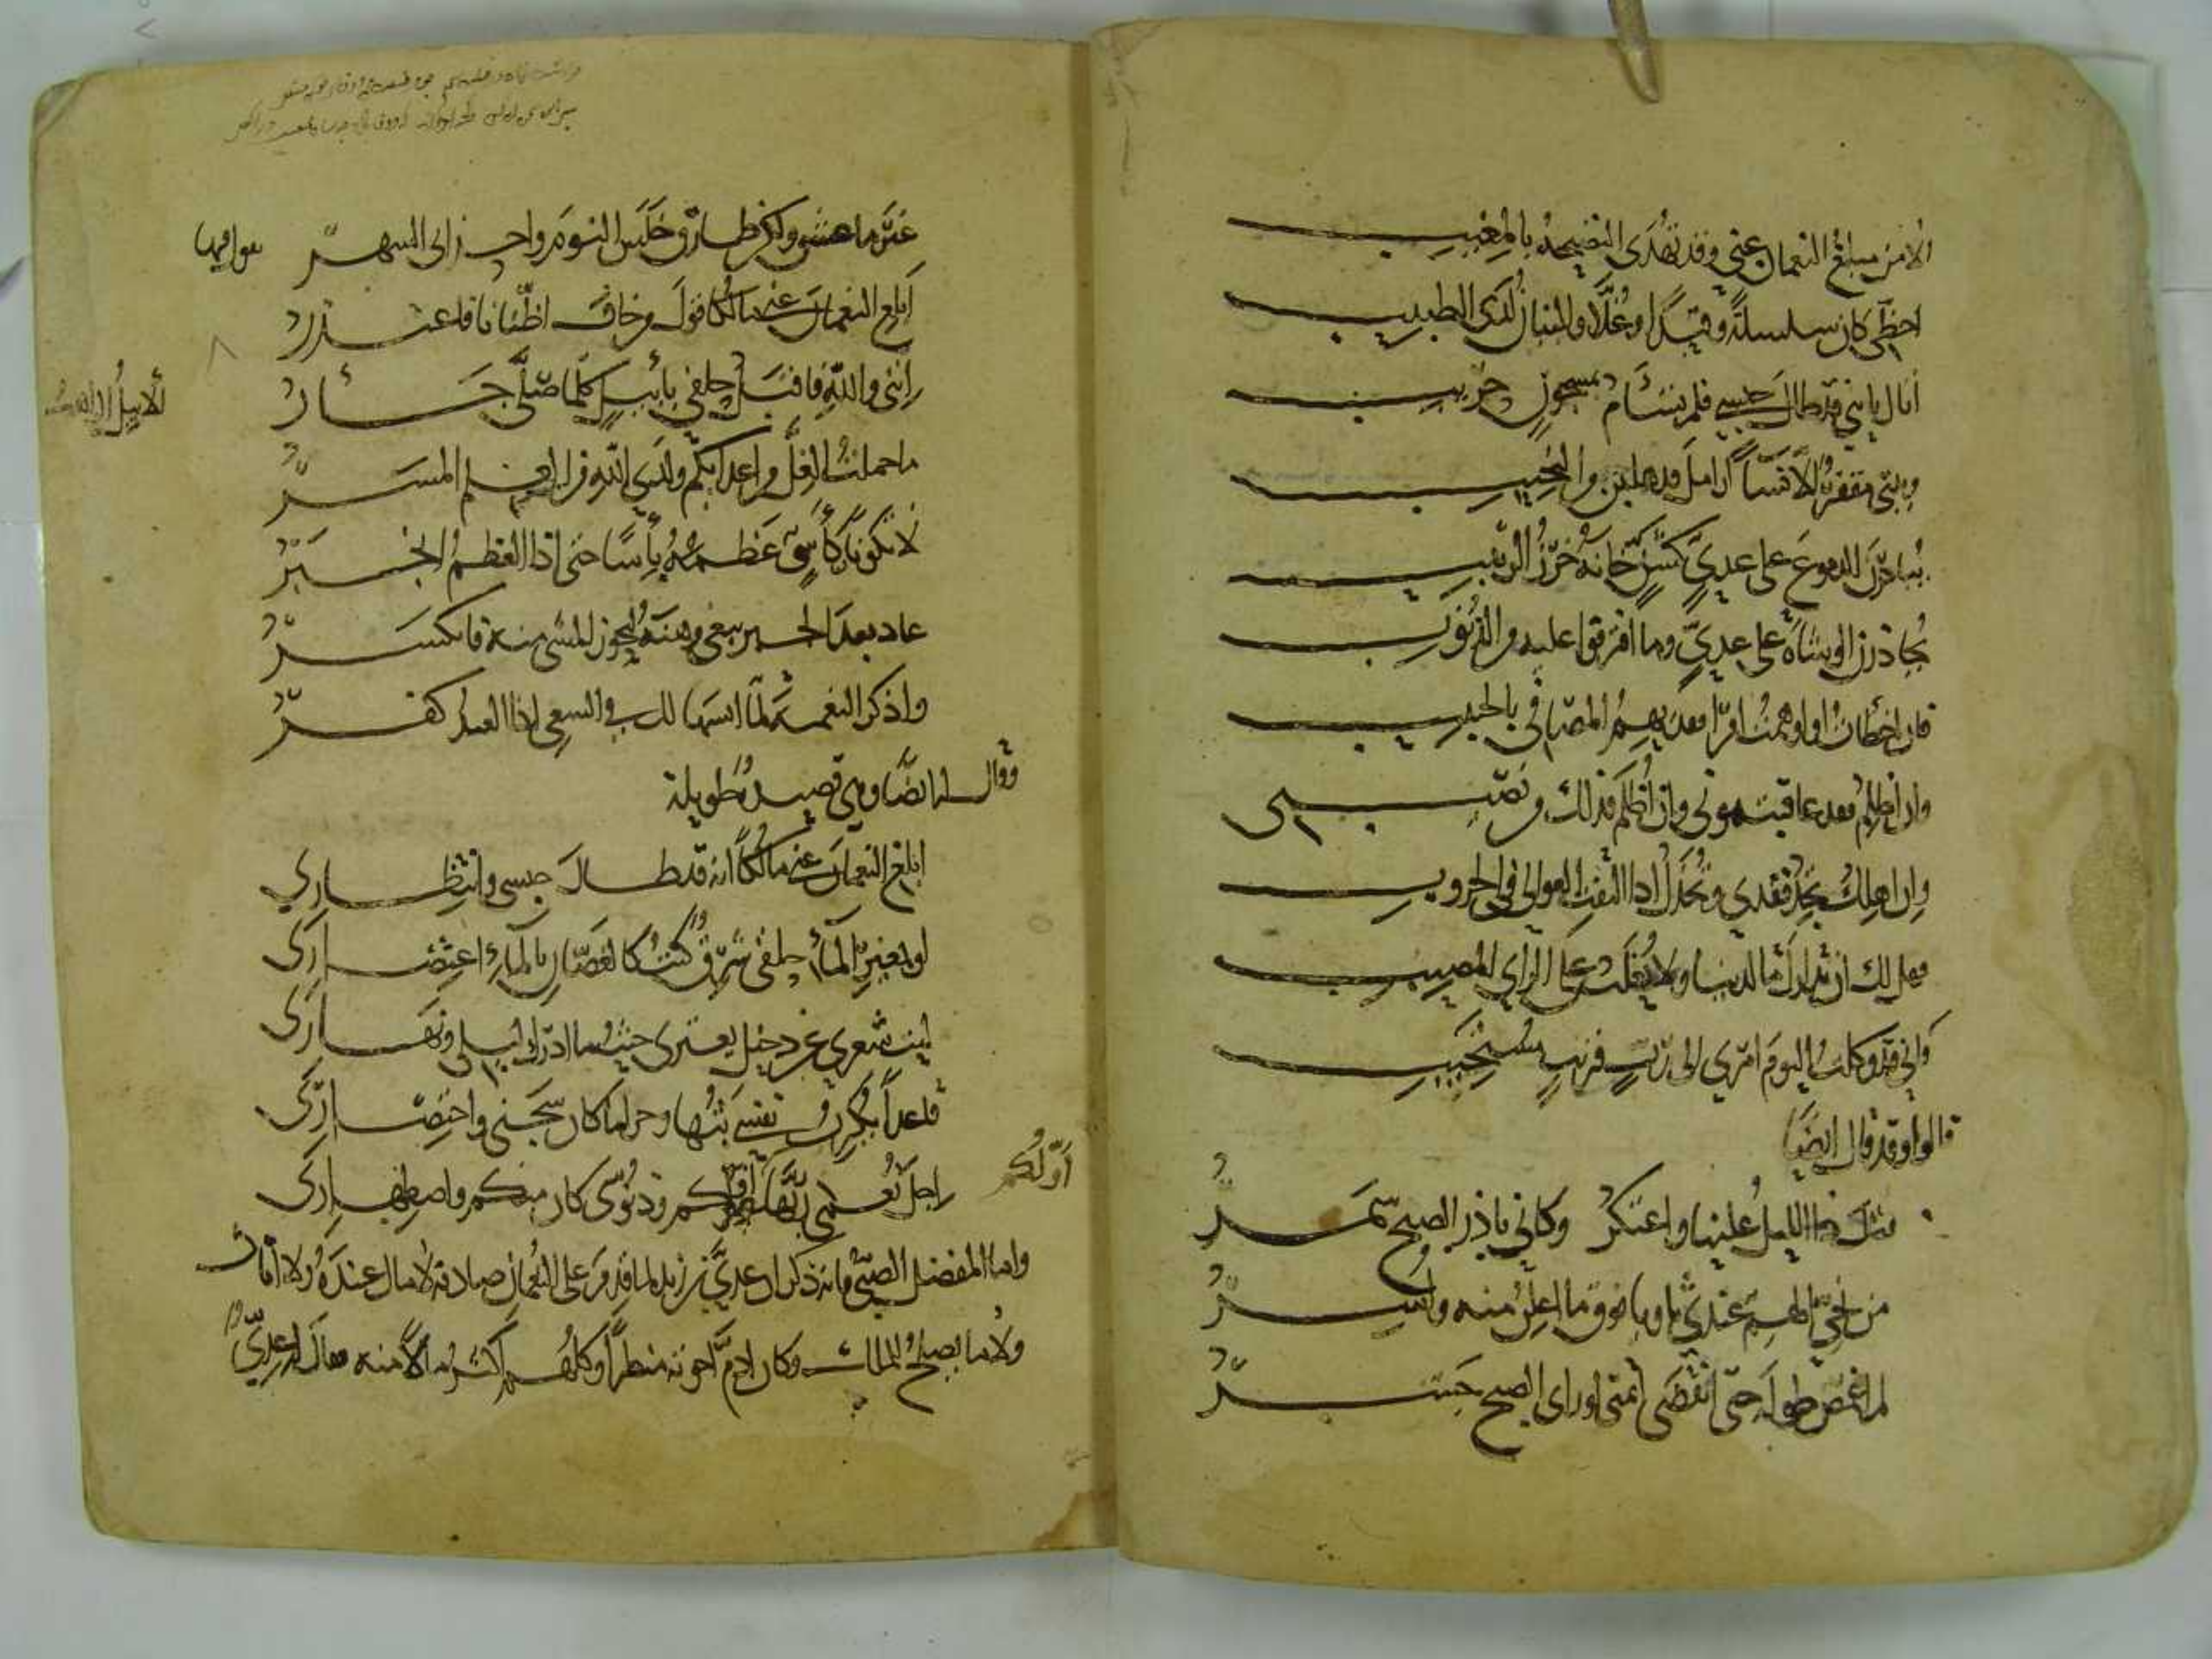 ألا من مبلغ النعمان عني وقد تُهدى النصيحة بالمغيب
احظي كان سلسلة وقيدا وغلا والبيان لدى الطبيب
اتاك بانني قد طال حبسي فلم تسأم بمسجون حريب
وبيتي مقفر إلا نساء أرامل قد هلكن من النحيب
يبادرن الدموع على عدي كشن خانه خرز الربيب
يحاذرن الوشاة على عدي وما اقترفوا عليه من الذنوب
فان اخطات او اوهمت امرا فقد يهم المصافي بالحبيب
وان اظلم فقد عاقبتموني وان أُظلم فذلك من نصيبي
وان اهلك تجد فقدي وتُخذل اذا التقت العوالي في الحروب
فهل لك ان تدارك ما لدينا ولا تُغلب على الراي المصيب
واني قد وكلت اليوم امري الى رب قريب مستجيب
قالوا وقد قال ايضا
الليل علينا واعتكر وكاني ناذر الصبح سمر
من نجي الهم عندي ثاويا فوق ما اعلن منه واسر
لم اغمض طوله حتى انقضى اتمنى لو ارى الصبح جشر
غير ما عشق ولكن طارق خلس النوم واجداني السهر
ابلغ النعمان عني مالكا قول من خاف اظنانا فاعتذر
إنني والله فاقبل حلفي بأبيل كلما صلى جأر
الابيل الراهب
ما حملت الغل من اعدائكم ولدى الله من العلم المسر
لا تكونن كآسي عظمه بأسا حتى اذا العظم انجبر
عاد بعد الجبر يبغي وهنه يحوز المشي منه فانكسر
واذكر النعمة لما انسها لك في السعي اذا العبد كفر
وقال له ايضا وهي قصيدة طويلة
ابلغ النعمان عني مالكا انه قد طال حبسي وانتظاري
لو بغير الماء حلقي شرق كنت كالغصان بالماء اعتصاري
ليت شعري عن دخيل يعتري حيث ما ادرك ليلي ونهاري
قاعدا يكرب نفسي بثها وحراما كان سجني واختصاري
اجل نعمى ربها اولكم ودنوي كان منكم واصطهاري
أولكم
واما المفضل الضبي فانه ذكر ان عدي بن زيد لما قدم على النعمان صادفه لا مال عنده ولا اثاث
ولا ما يصلح للملك وكان ادم اخوته منظرا وكلهم اكثر مالا منه فقال له عدي